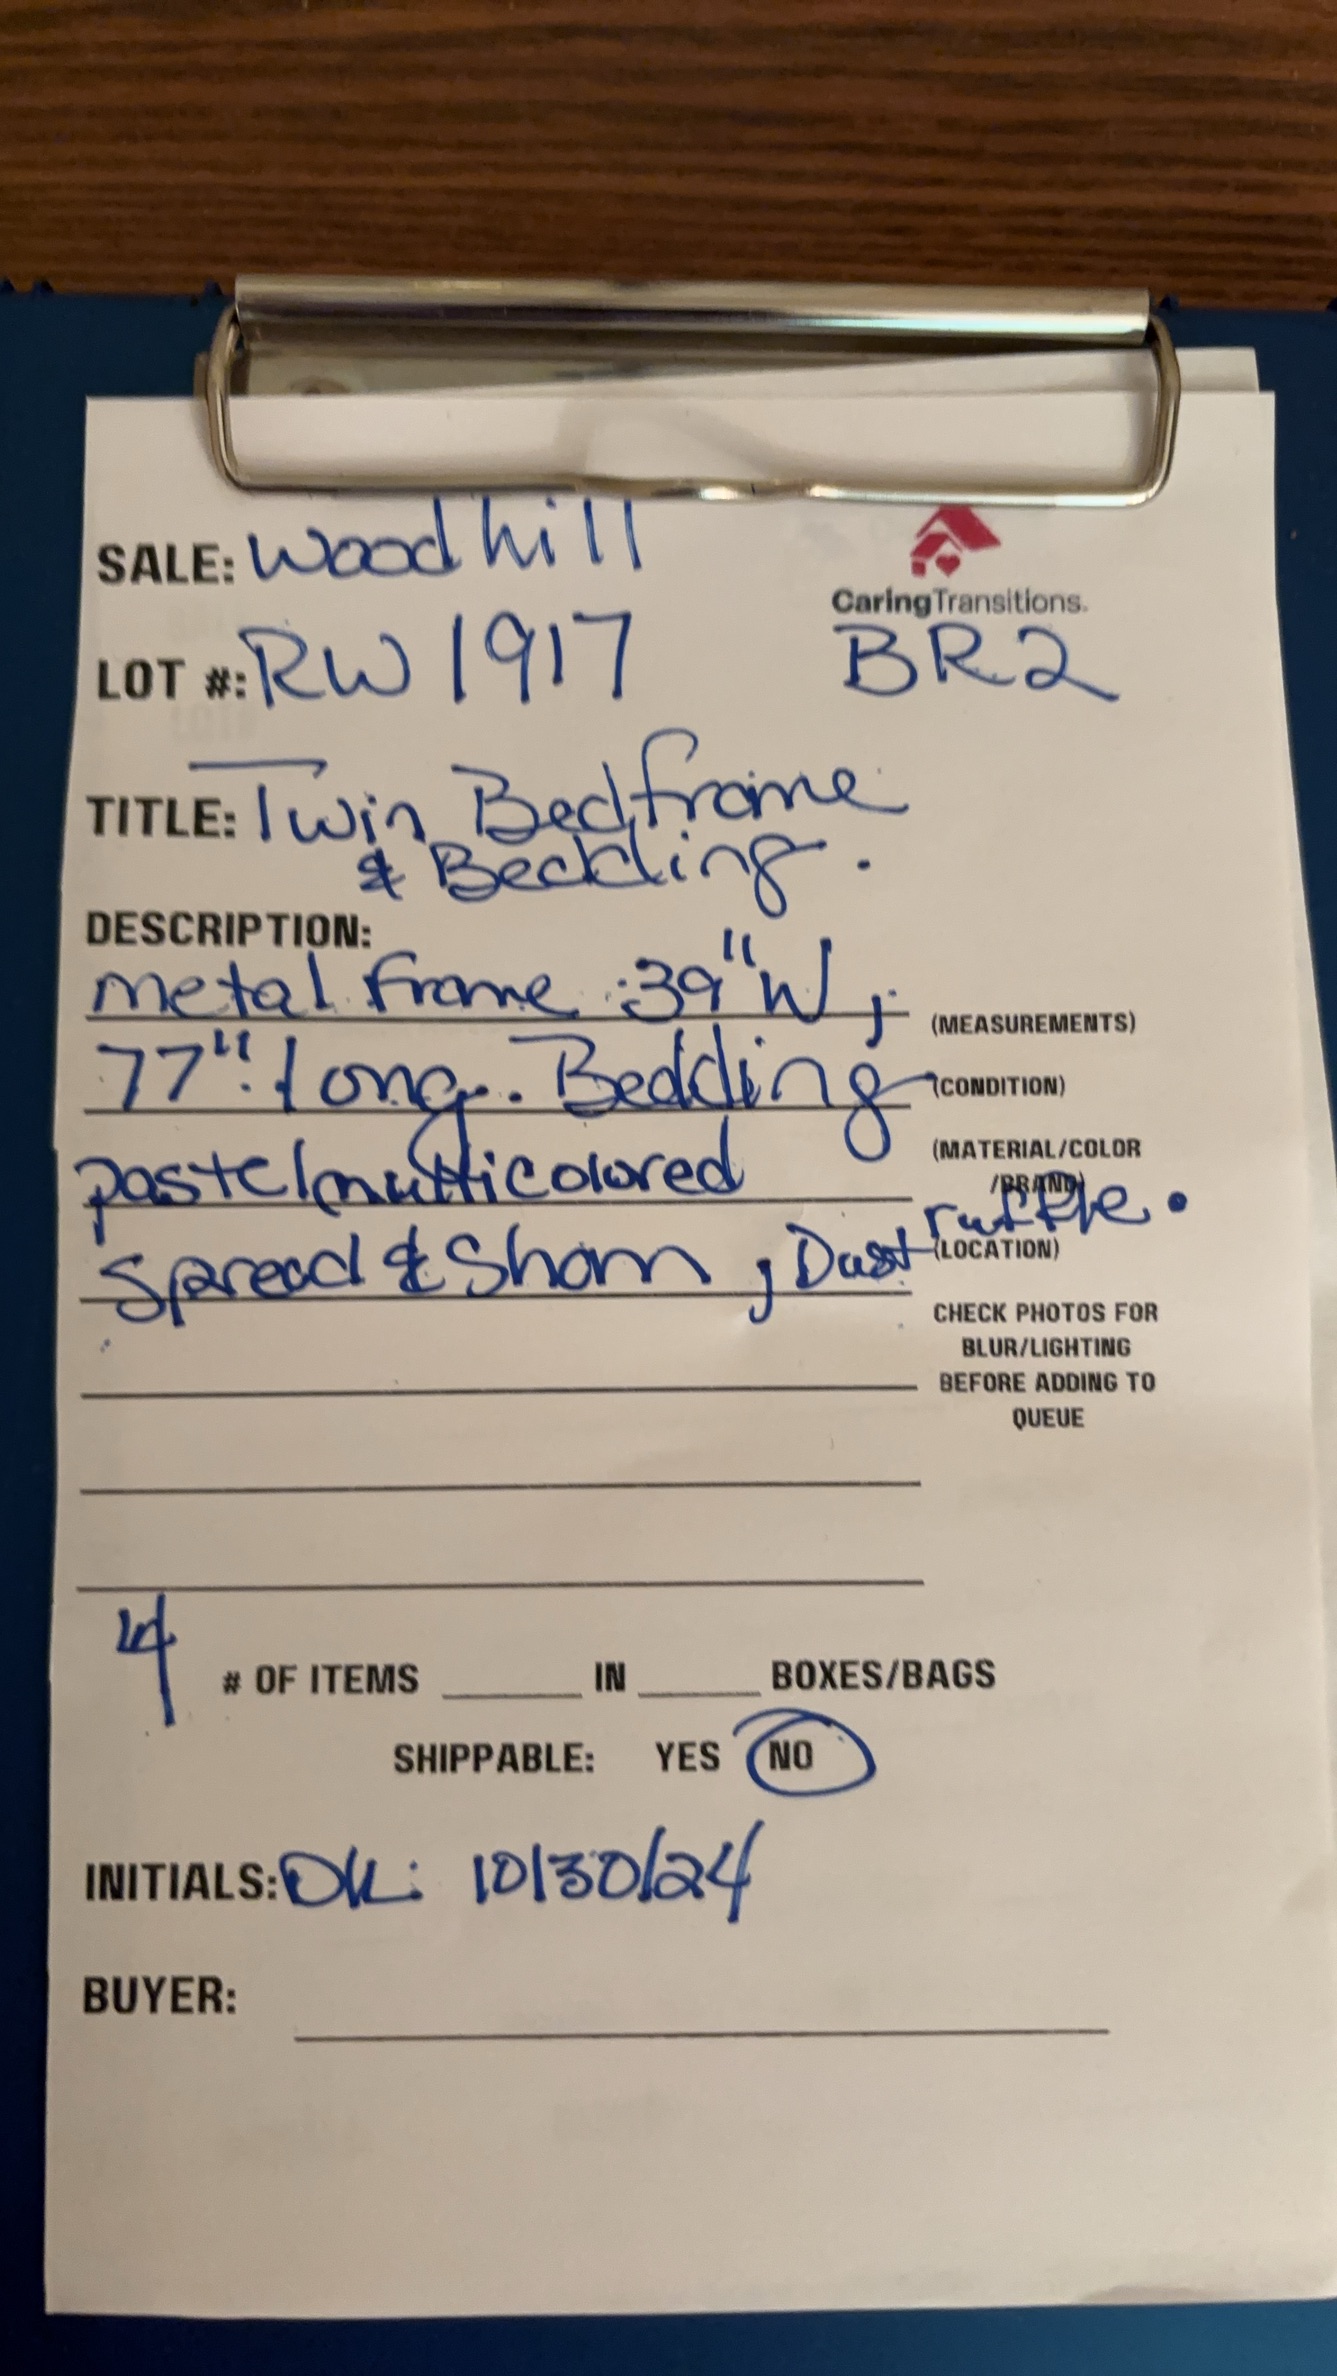 SALE: Woodhill
CaringTransitions.
LOT #: RW 1917 BR2
TITLE: Twin Bedframe
& Bedding.
DESCRIPTION:
metal frame :39"W;
(MEASUREMENTS)
77" long.. Bedding
(CONDITION)
pastel multicolored
(MATERIAL/COLOR
/BRAND)
Spread & Sham ; Dust ruffle.
(LOCATION)
CHECK PHOTOS FOR
BLUR/LIGHTING
BEFORE ADDING TO
QUEUE
4 # OF ITEMS ______ IN ______ BOXES/BAGS
SHIPPABLE: YES NO
INITIALS: DK: 10/30/24
BUYER: